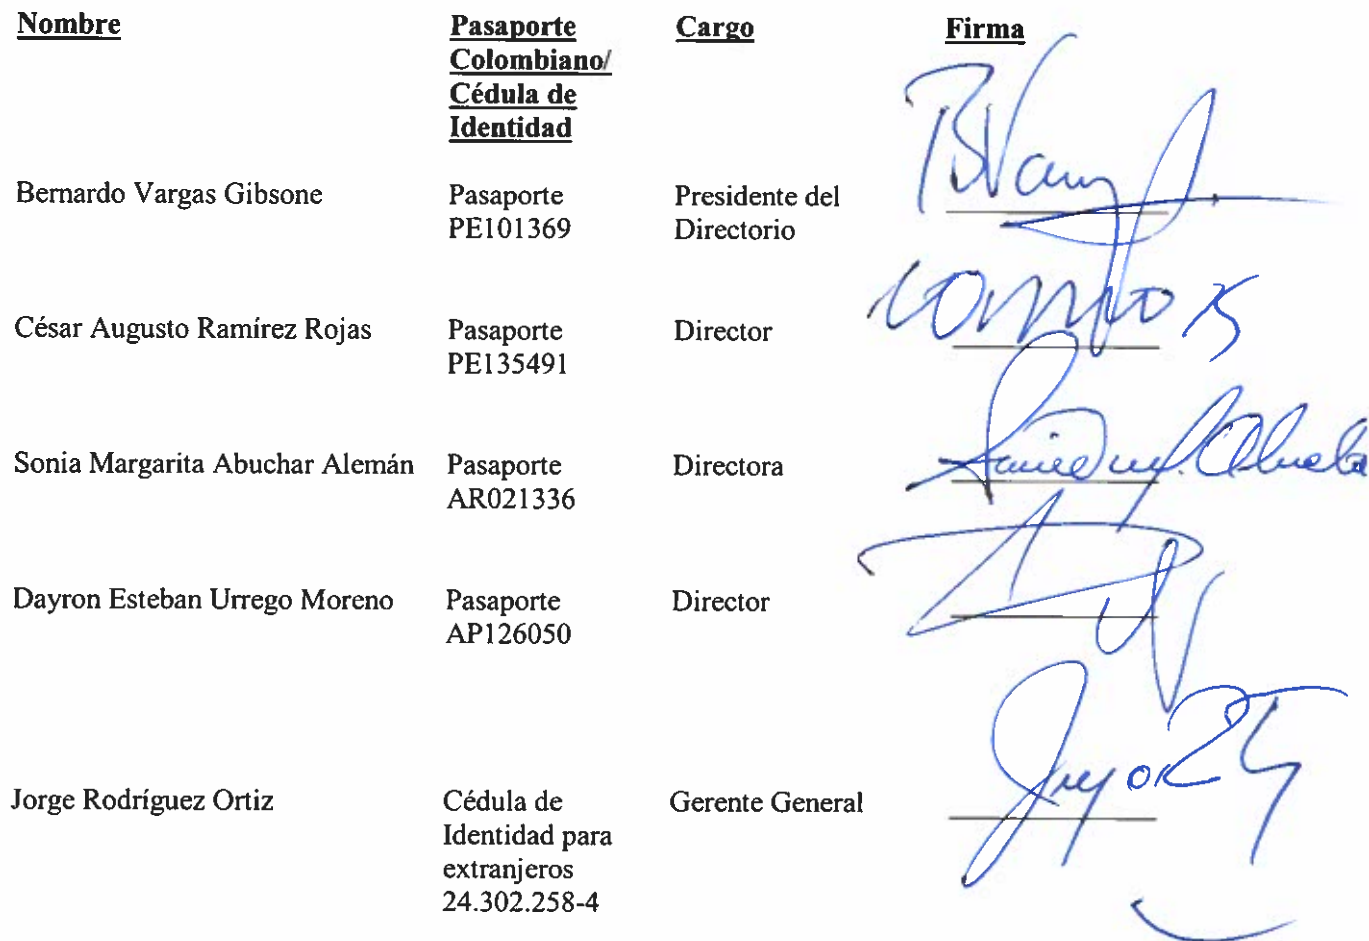 Nombre
Pasaporte
Colombiano/
Cédula de
Identidad
Cargo
Firma
Bernardo Vargas Gibsone
Pasaporte
PE101369
Presidente del
Directorio
César Augusto Ramírez Rojas
Pasaporte
PE135491
Director
Sonia Margarita Abuchar Alemán
Pasaporte
AR021336
Directora
Dayron Esteban Urrego Moreno
Pasaporte
AP126050
Director
Jorge Rodríguez Ortiz
Cédula de
Identidad para
extranjeros
24.302.258-4
Gerente General